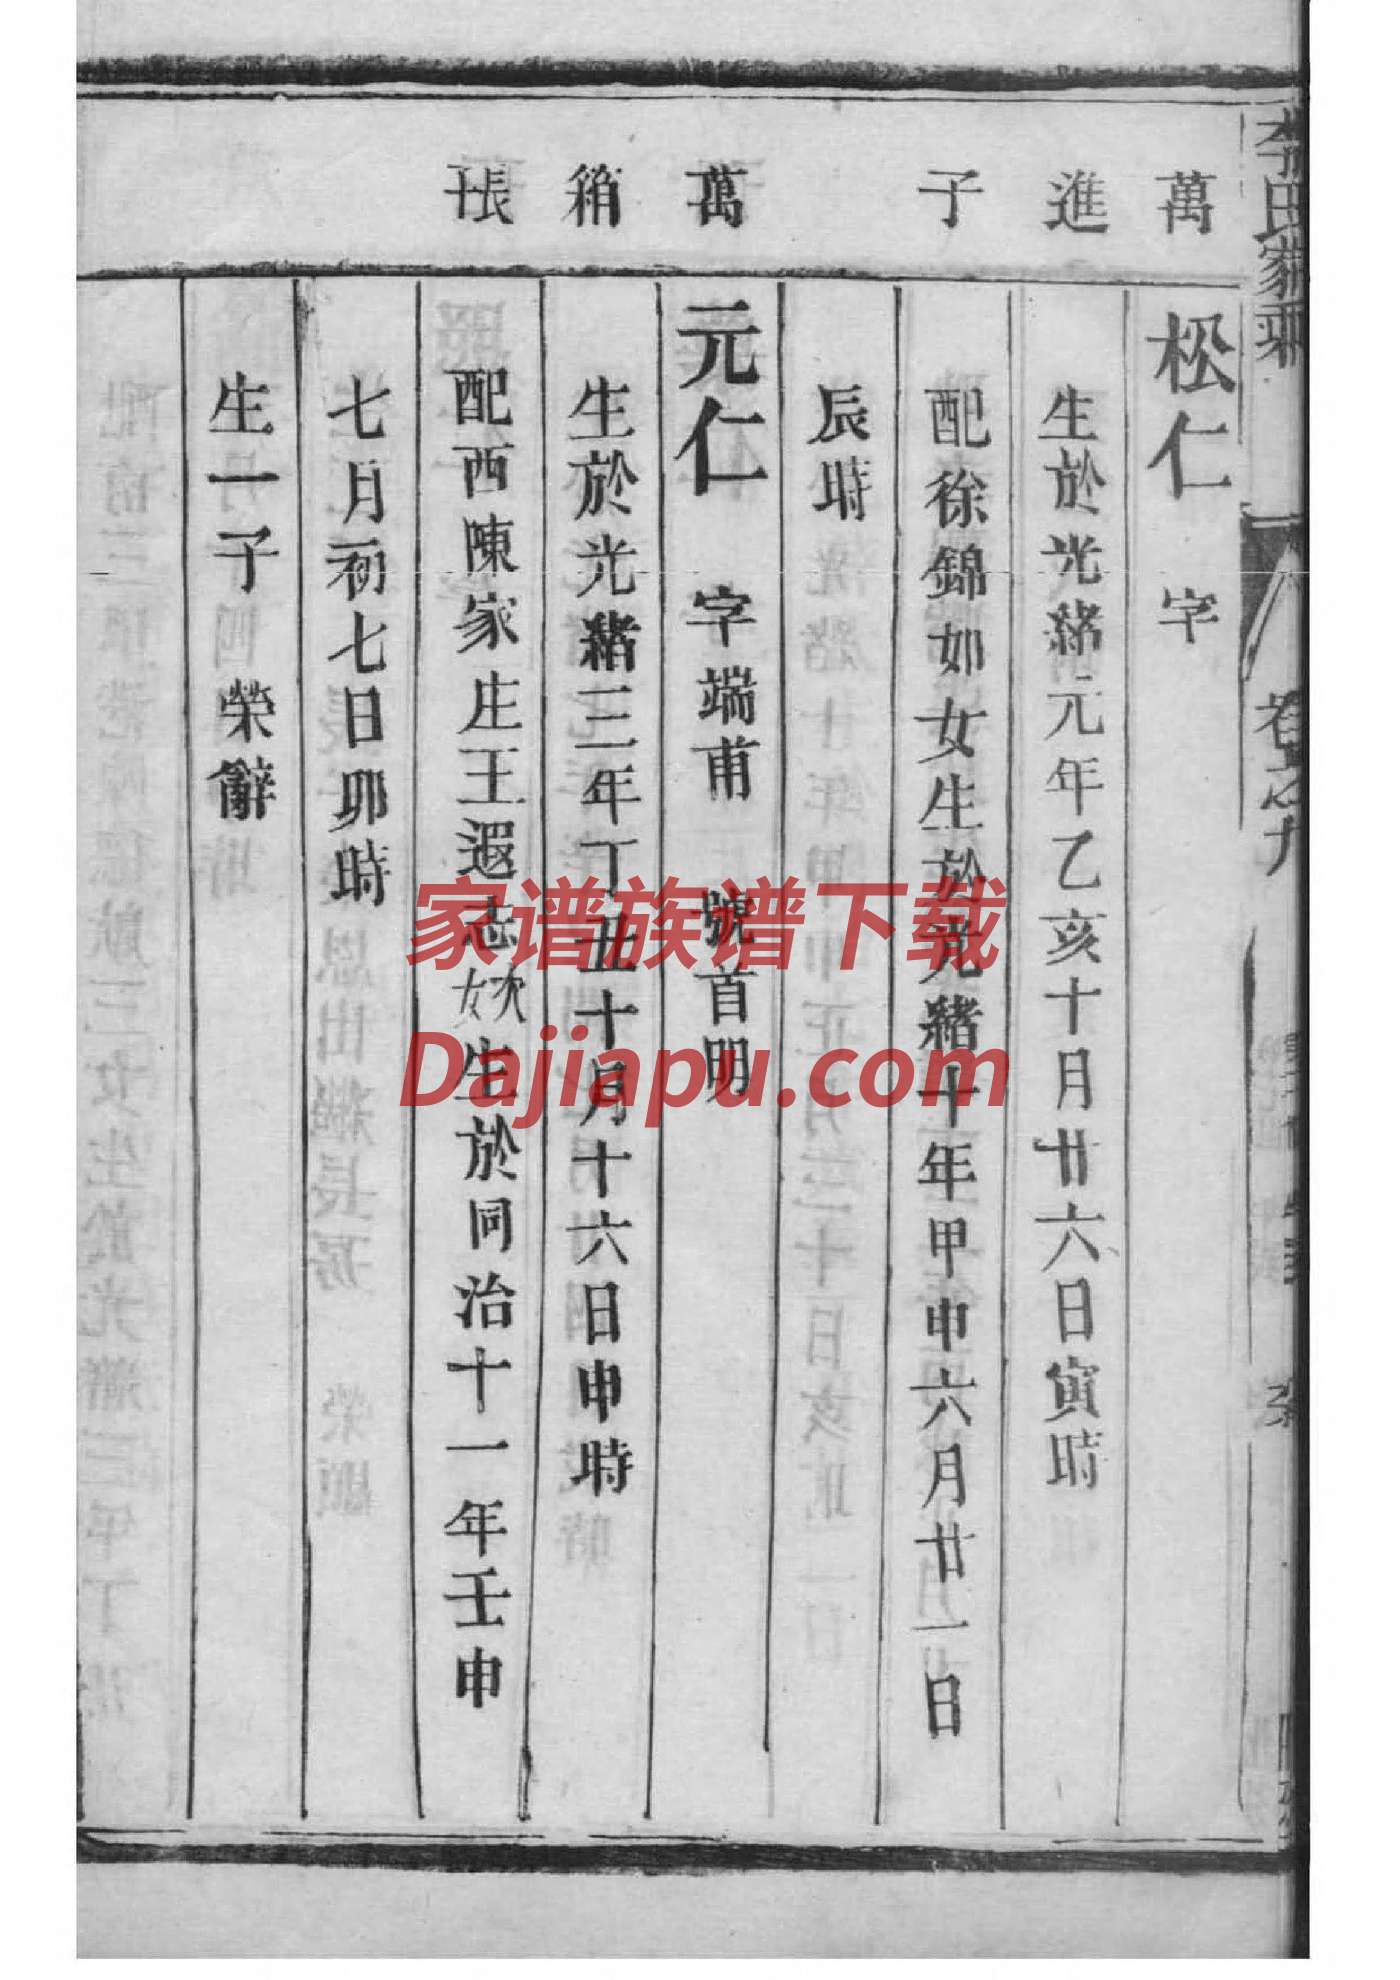 李氏家乘
卷之九
萬
進
子
萬
箱
長
松仁 字
生於光緒元年乙亥十月廿六日寅時
配徐錦如女生於光緒十年甲申六月廿一日
辰時
元仁 字端甫 號首明
生於光緒三年丁丑十月十六日申時
配西陳家庄王遐志次女生於同治十一年壬申
七月初七日卯時
生一子 榮辭
家谱族谱下载
Dajiapu.com